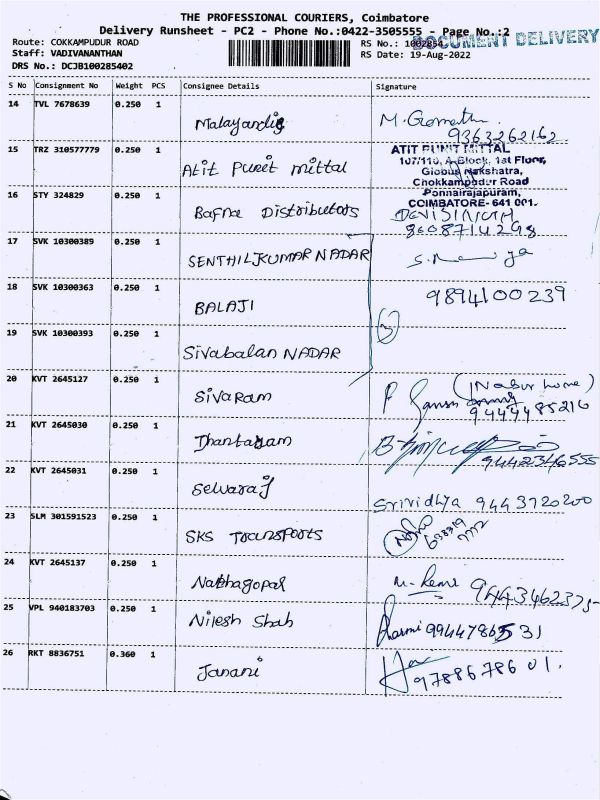 THE PROFESSIONAL COURIERS, Coimbatore
Delivery Runsheet - PC2 - Phone No.:0422-3505555 - Page No.:2
DOCUMENT DELIVERY
Route: COKKAMPUDUR ROAD RS No.: 1002854
Staff: VADIVANANTHAN RS Date: 19-Aug-2022
DRS No.: DCJB100285402
S No Consignment No Weight PCS Consignee Details Signature
14 TVL 7678639 0.250 1 Malayandi M. Gomathi
9363262162
15 TRZ 310577779 0.250 1 Atit Puneet mittal ATIT PUNIT MITTAL
107/110, A-Block, 1st Floor,
Globus Nakshatra,
Chokkampudur Road
Ponnairajapuram,
COIMBATORE- 641 001.
16 STY 324829 0.250 1 Bafna Distributors DEVISINGH
8608714298
17 SVK 10300389 0.250 1 SENTHILKUMAR NADAR
18 SVK 10300363 0.250 1 BALAJI 9894100239
3
19 SVK 10300393 0.250 1 Sivabalan NADAR
20 KVT 2645127 0.250 1 SivaRam (Nabur home)
9444485216
21 KVT 2645030 0.250 1
9442346555
22 KVT 2645031 0.250 1 Selvaraj Srividhya 9443720200
23 SLM 301591523 0.250 1 SKS Transports
24 KVT 2645137 0.250 1 M. Remi 9443462375
25 VPL 940183703 0.250 1 Nilesh Shah 9944786531
26 RKT 8836751 0.360 1 Janani
9788678601.